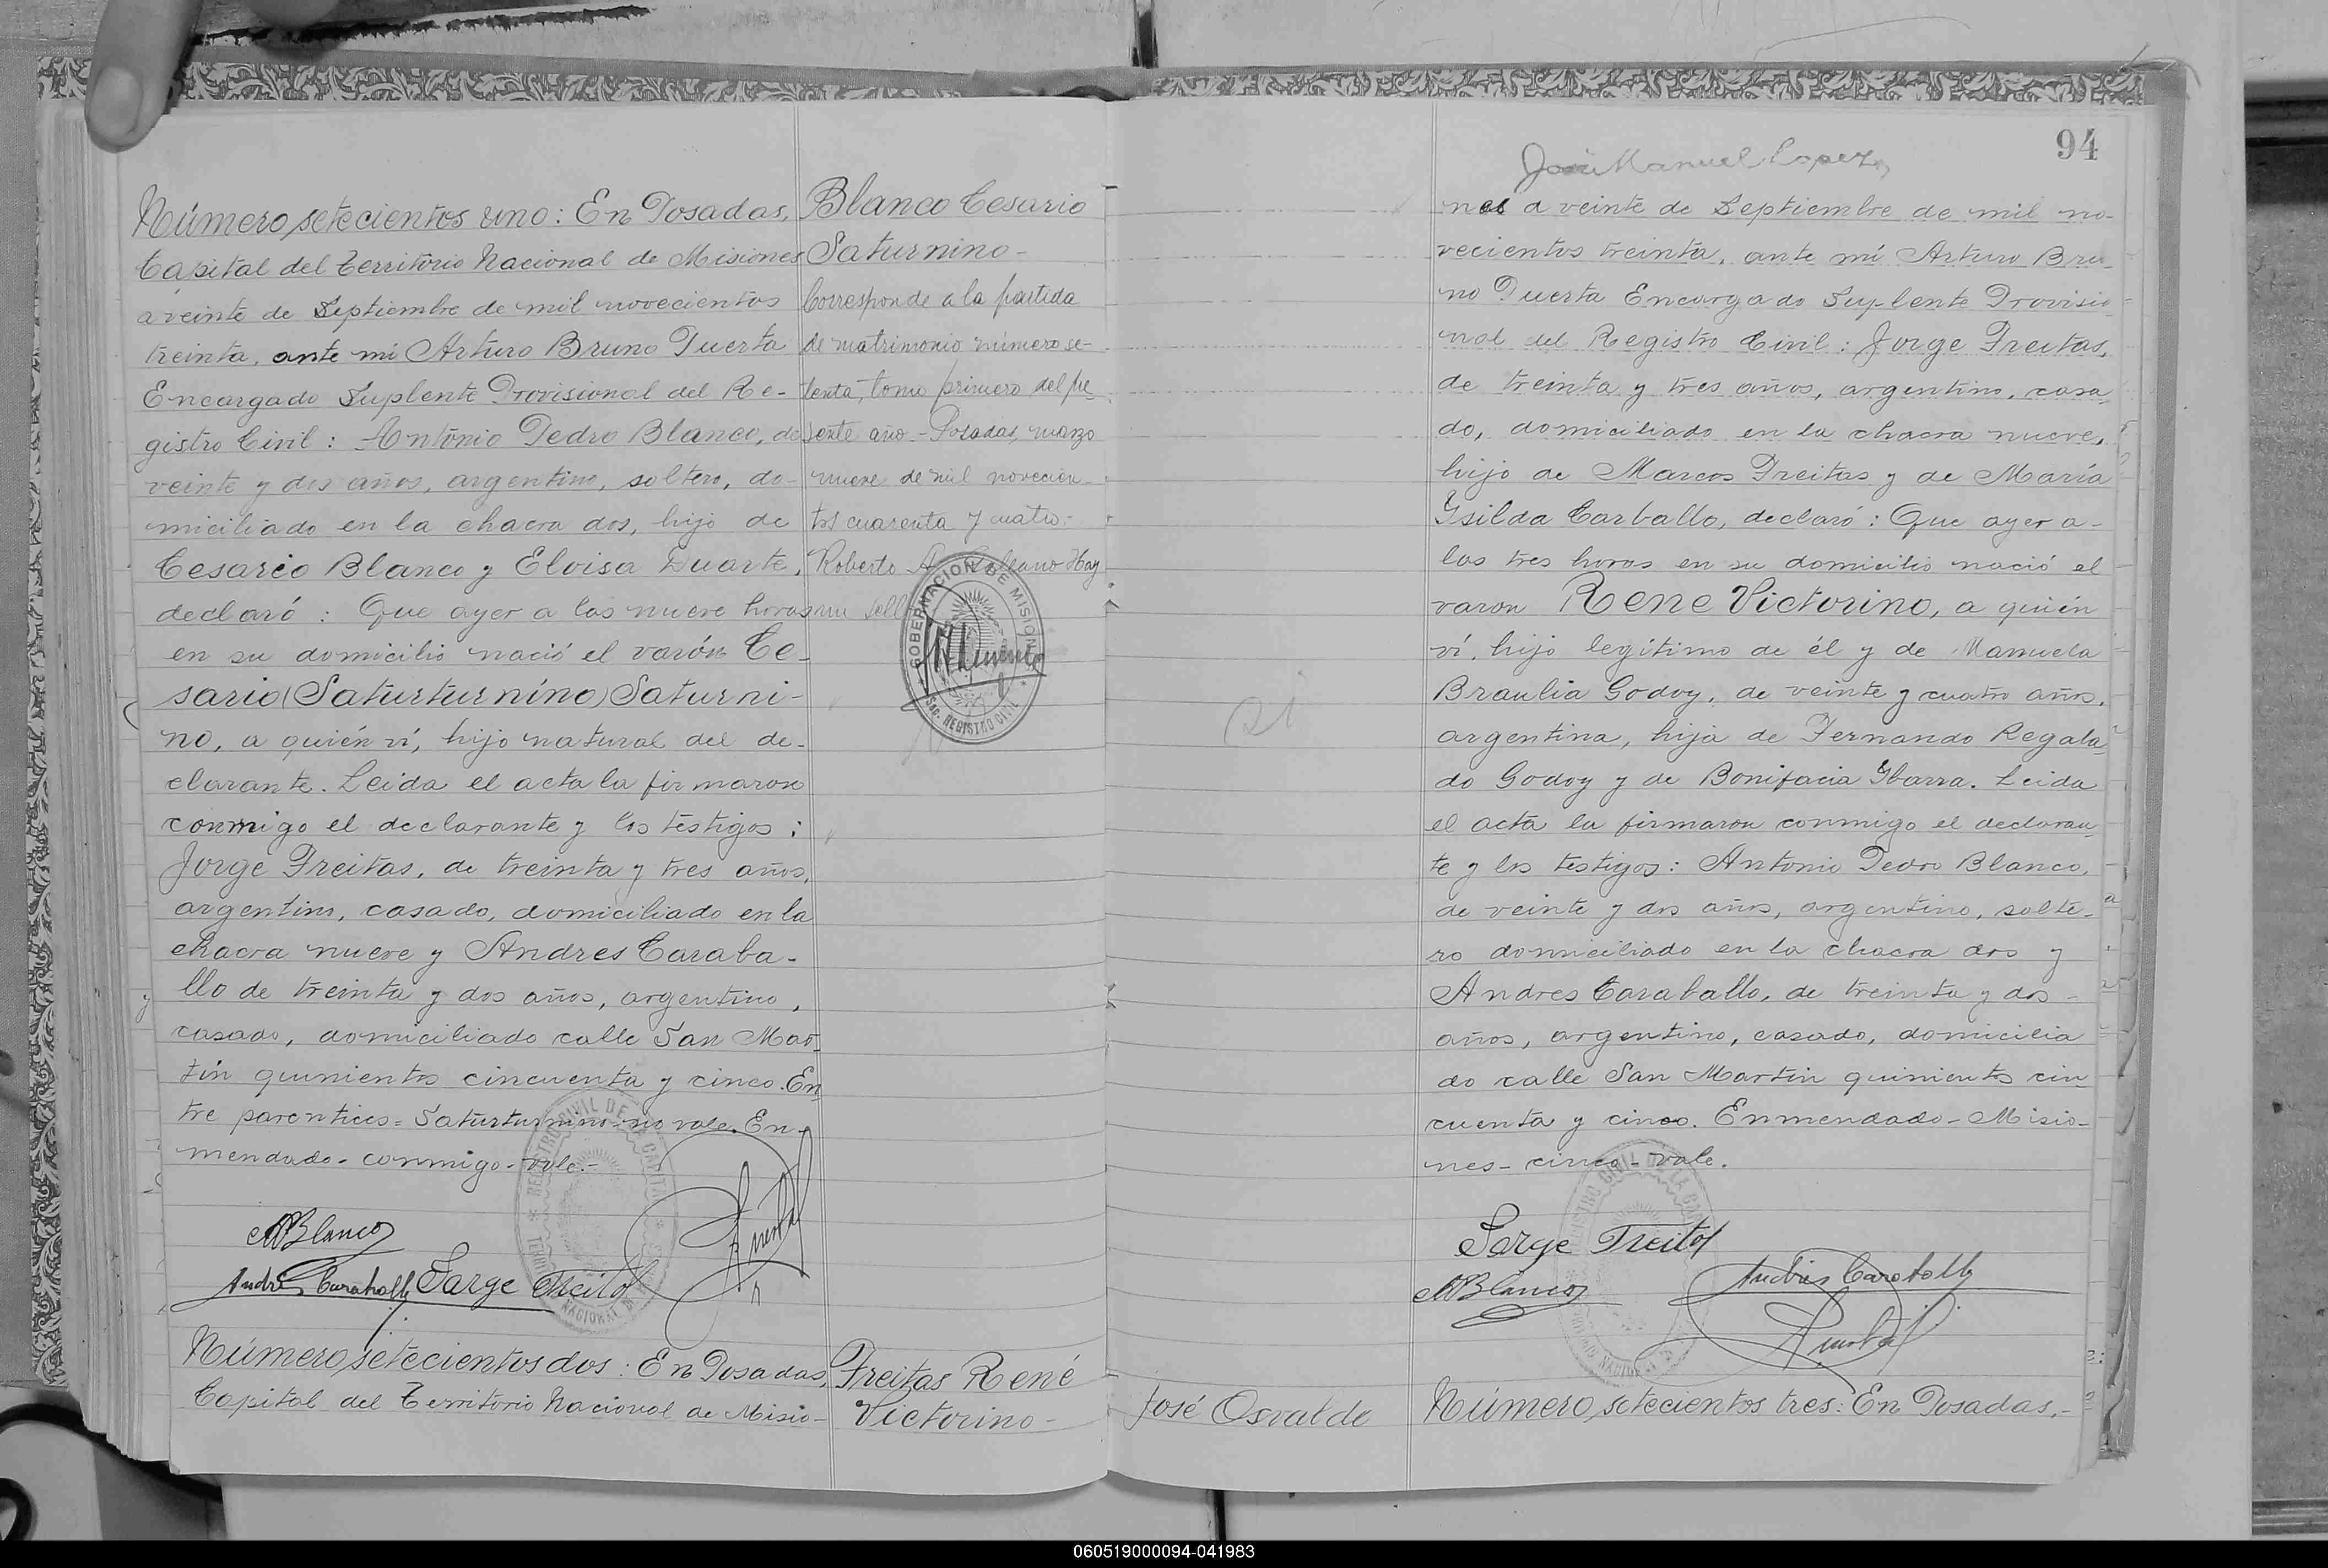 Número setecientos uno: En Posadas,
Capital del Territorio Nacional de Misiones
a veinte de Septiembre de mil novecientos
treinta, ante mi Arturo Bruno Puerta
Encargado Suplente Provisional del Re-
gistro Civil: Antonio Pedro Blanco, de
veinte y dos años, argentino, soltero, do-
miciliado en la chacra dos, hijo de
Cesareo Blanco y Eloisa Duarte,
declaró: Que ayer a las nueve horas
en su domicilio nació el varón Ce-
sario (Saturturnino) Saturni-
no, a quién ví, hijo natural del de-
clarante. Leida el acta la firmaron
conmigo el declarante y los testigos:
Jorge Freitas, de treinta y tres años,
argentino, casado, domiciliado en la
chacra nueve y Andres Caraba-
llo de treinta y dos años, argentino,
casado, domiciliado calle San Mar-
tín quinientos cincuenta y cinco. En
tre parentices = Saturturnino no vale. En-
mendado - conmigo - vale.-
ABlanco
Andrés Caraballo Jorge Freitas
REGISTRO CIVIL DE LA CAPITAL
Número setecientos dos: En Posadas,
Capital del Territorio Nacional de Misio-
Blanco Cesario
Saturnino-
Corresponde a la partida
de matrimonio número se-
tenta, tomo primero del pre
sente año - Posadas, marzo
nueve de mil novecien-
tos cuarenta y cuatro.-
Roberto A. Galeano Hay
un sello
GOBERNACION DE MISIONES
Sec. REGISTRO CIVIL
Freitas René
Victorino-
José Osvaldo
94
José Manuel Lopez
nes a veinte de Septiembre de mil no-
vecientos treinta, ante mí Arturo Bru-
no Puerta Encargado Suplente Provisio-
nal del Registro Civil: Jorge Freitas,
de treinta y tres años, argentino, casa
do, domiciliado en la chacra nueve,
hijo de Marcos Freitas y de María
Ysilda Carballo, declaró: Que ayer a-
las tres horas en su domicilio nació el
varon Rene Victorino, a quién
ví, hijo legítimo de él y de Manuela
Braulia Godoy, de veinte y cuatro años,
argentina, hija de Fernando Regala
do Godoy y de Bonifacia Ybarra. Leida
el acta la firmaron conmigo el declaran
te y los testigos: Antonio Pedro Blanco,
de veinte y dos años, argentino, solte-
ro domiciliado en la chacra dos y
Andres Caraballo, de treinta y dos-
años, argentino, casado, domicilia
do calle San Martin quinientos cin
cuenta y cinco. Enmendado - Misio-
nes - cinco - vale.
Jorge Freitas
ABlanco Andrés Caraballo
Número setecientos tres: En Posadas,-
060519000094-041983